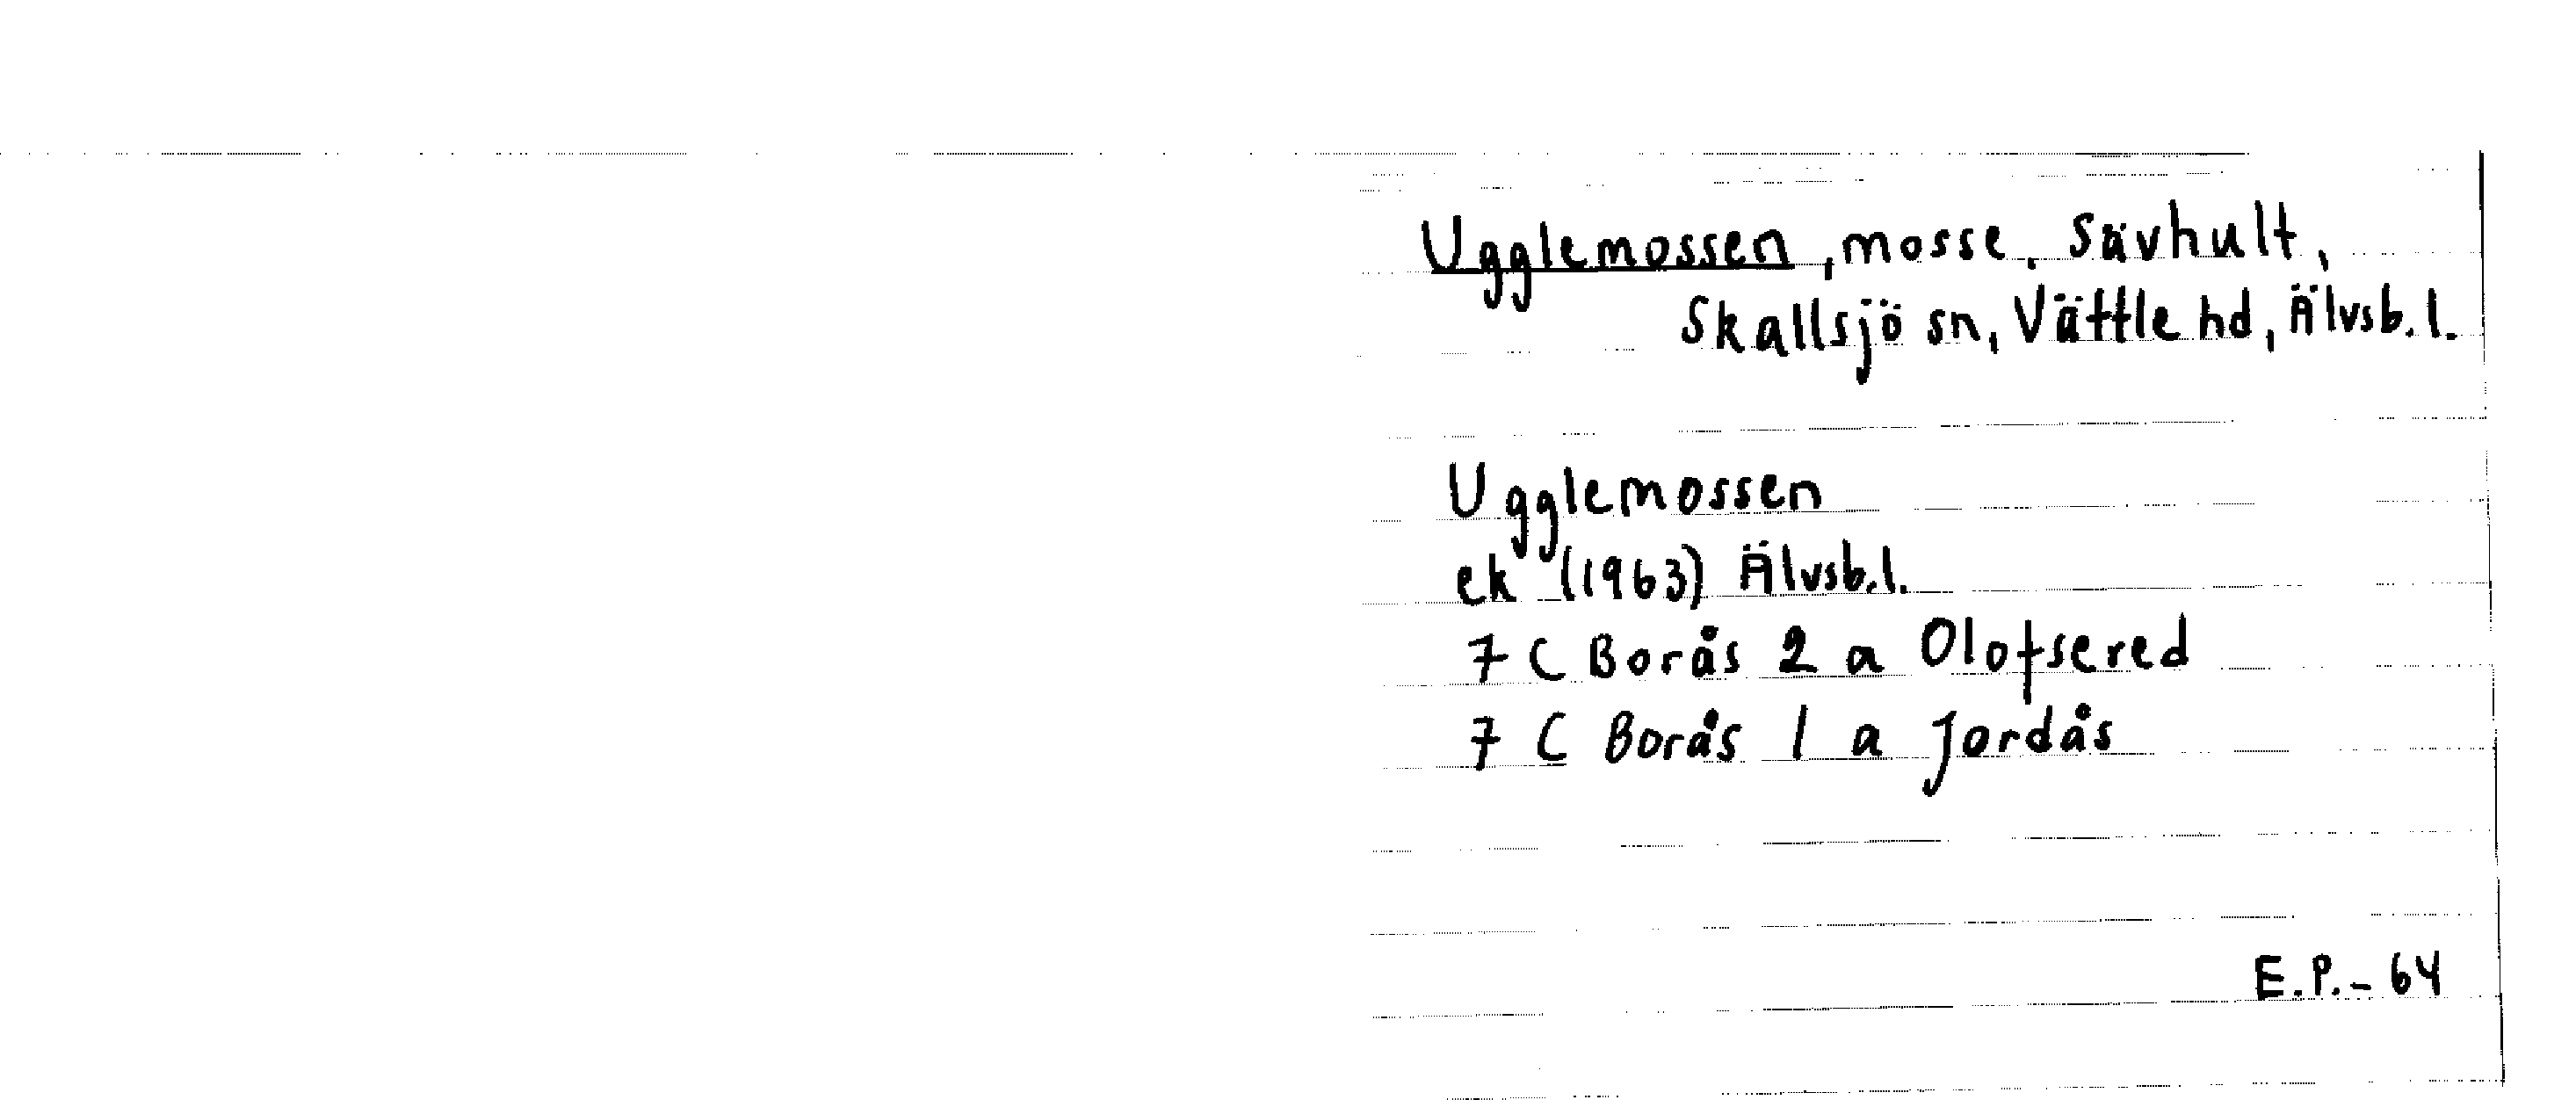 Ugglemossen, mosse. Sävhult,
Skallsjö sn, Vättle hd, Älvsb. l.
Ugglemossen
ek (1963) Älvsb. l.
7 C Borås 2 a Olofsered
7 C Borås 1 a Jordås
E.P.- 64